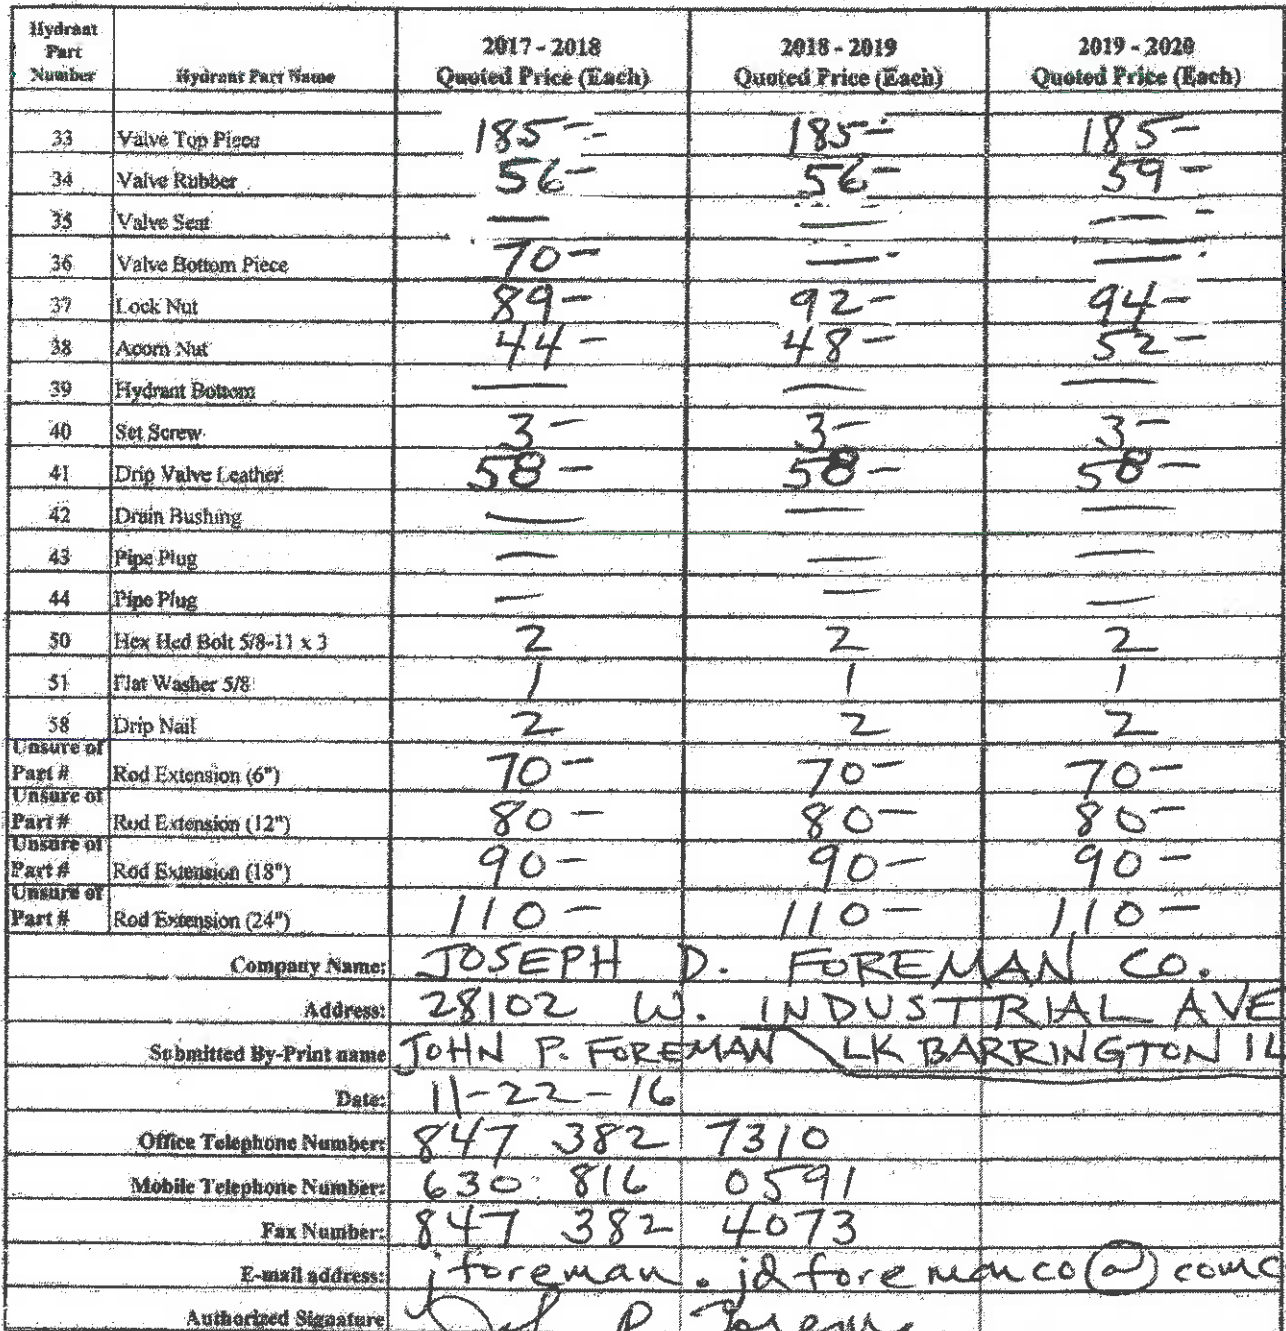 Hydrant Part Number Hydrant Part Name 2017 - 2018 Quoted Price (Each) 2018 - 2019 Quoted Price (Each) 2019 - 2020 Quoted Price (Each)
33 Valve Top Piece 185- 185- 185-
34 Valve Rubber 56- 56- 59-
35 Valve Seat — — —
36 Valve Bottom Piece 70- — —
37 Lock Nut 89- 92- 94-
38 Acorn Nut 44- 48- 52-
39 Hydrant Bottom — — —
40 Set Screw 3- 3- 3-
41 Drip Valve Leather 58- 58- 58-
42 Drain Bushing — — —
43 Pipe Plug — — —
44 Pipe Plug — — —
50 Hex Hed Bolt 5/8-11 x 3 2 2 2
51 Flat Washer 5/8 1 1 1
58 Drip Nail 2 2 2
Unsure of Part # Rod Extension (6") 70- 70- 70-
Unsure of Part # Rod Extension (12") 80- 80- 80-
Unsure of Part # Rod Extension (18") 90- 90- 90-
Unsure of Part # Rod Extension (24") 110- 110- 110-
Company Name: JOSEPH D. FOREMAN CO.
Address: 28102 W. INDUSTRIAL AVE
Submitted By-Print name JOHN P. FOREMAN LK BARRINGTON IL
Date: 11-22-16
Office Telephone Number: 847 382 7310
Mobile Telephone Number: 630 816 0591
Fax Number: 847 382 4073
E-mail address: jforeman.jdforemanco@comc
Authorized Signature